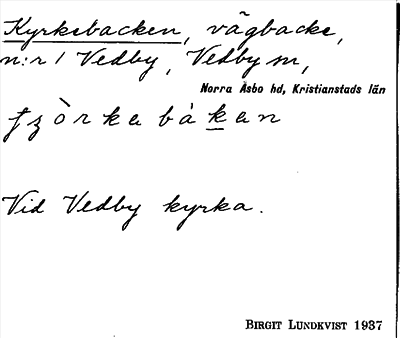 Kyrkebacken, vägbacke,
n:r 1 Vedby, Vedby sn,
Norra Åsbo hd, Kristianstads län
Vid Vedby kyrka.
BIRGIT LUNDKVIST 1937